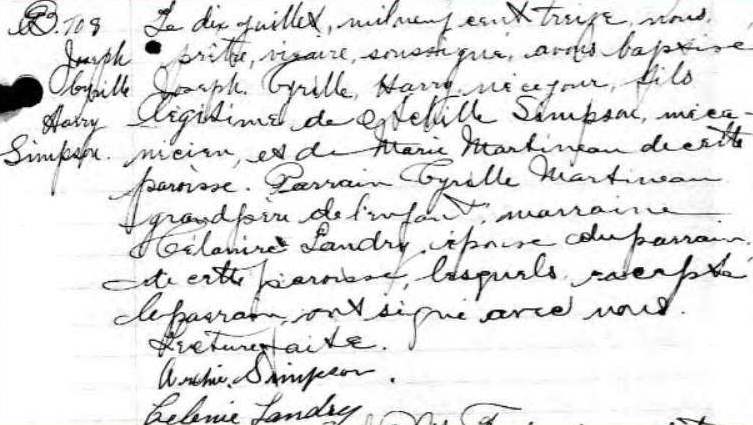 B.708
Joseph
Cyrille
Harry
Simpson.
Le dix juillet, mil neuf cent treize, nous,
prêtre, vicaire, soussigné, avons baptisé
Joseph, Cyrille, Harry, né ce jour, fils
légitime de Achille Simpson, méca-
nicien, et de Marie Martineau de cette
paroisse. Parrain Cyrille Martineau
grandpère de l'enfant, marraine
Mélanire Landry, épouse du parrain
de cette paroisse, lesquels, excepté
le parrain, ont signé avec nous.
Lecture faite.
Archie Simpson.
Celenie Landry